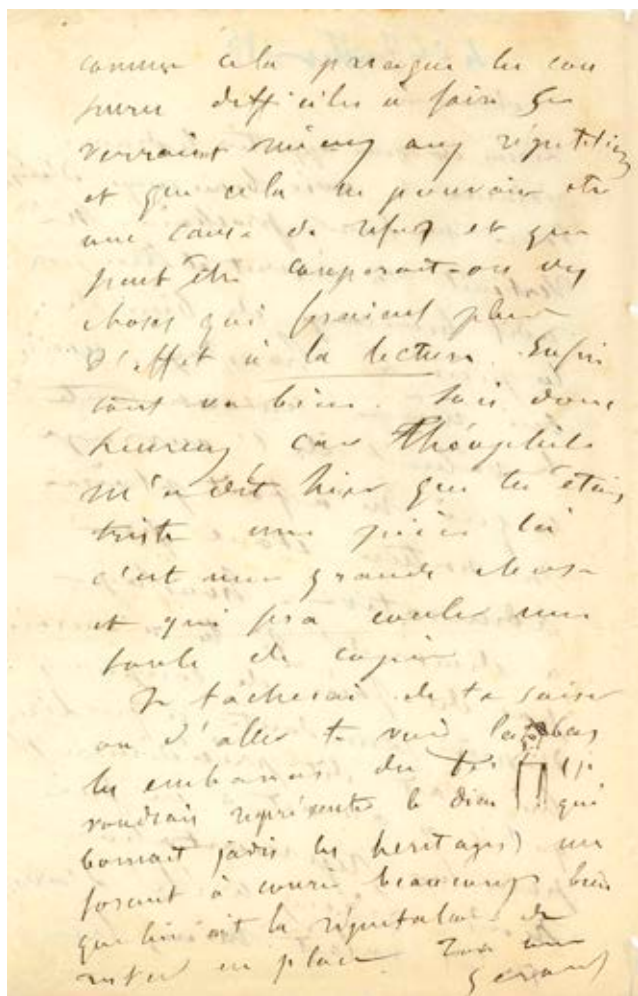 comme cela presque les cou
pures difficiles à faire se
verraient mieux aux répétitions
et que cela ne pouvait être
une cause de refus et que
peut être couperait-on des
choses qui feraient plus
d'effet à la lecture. Enfin
tout va bien. Sois donc
heureux car Théophile
m'a dit hier que tu étais
triste une pièce là
c'est une grande chose
et qui fera couler une
foule de copie
Je tâcherai de te saisir
ou d'aller te voir là bas
les embarras du
voudrais représenter le dieu qui
bornait jadis les heritages) me
forcent à courir beaucoup bien
que lui ait la réputation de
rester en place. Ton ami
Gérard